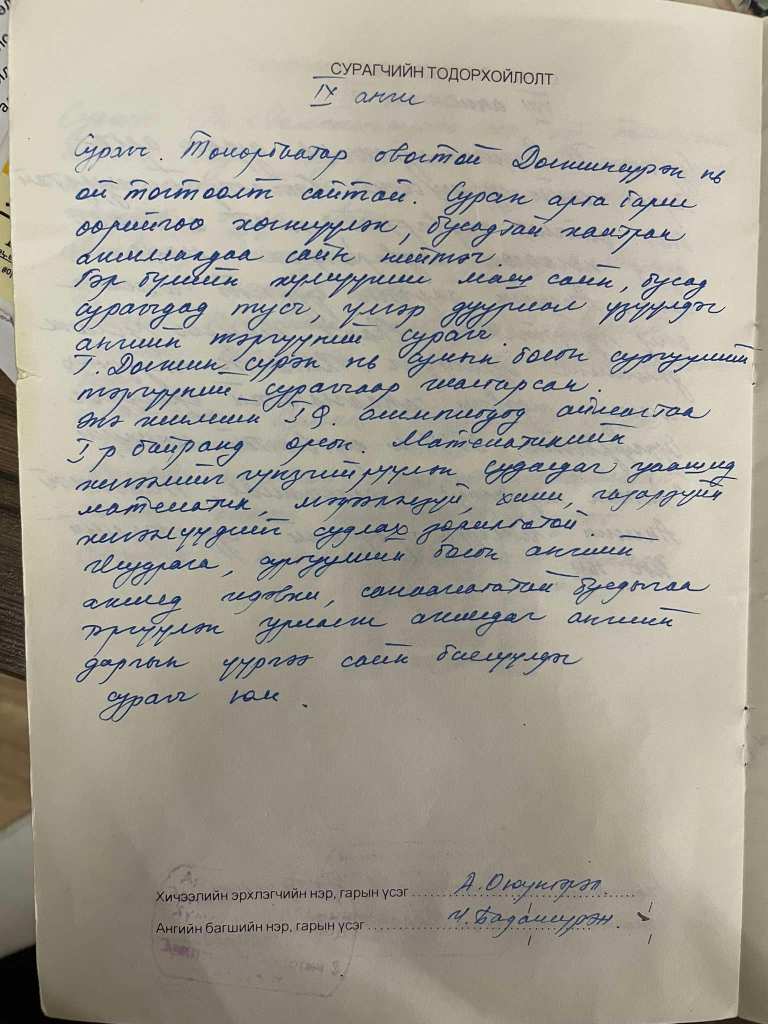 СУРАГЧИЙН ТОДОРХОЙЛОЛТ
IX анги
Сурагч. Төмөрбаатар овогтой Догшинсүрэн нь
ой тогтоолт сайтай. Сурах арга барил
өөрийгөө хөгжүүлэх, бусадтай хамтран
ажиллахдаа сайн нийтэч.
Гэр бүлийн хүмүүжил маш сайн, бусад
сурагчдад тусч, үлгэр дуурайл үзүүлдэг
ангийн тэргүүний сурагч.
Т. Догшинсүрэн нь сумын болон сургуулийн
тэргүүний сурагчаар шалгарсан.
Энэ жилийн олимпиадад аймагтаа
I р байранд орсон. Математикийн
хичээлийг гүнзгийрүүлэн судалдаг цаашид
математик, мэдээлэлзүй, хими, газарзүй
хичээлүүдийг судлах зорилготой.
Шударга, сургуулийн болон ангийн
ажилд идэвхи, санаачлагатай бусдыгаа
эргүүлэн урлагш ажилдаг ангийн
даргын үүргээ сайн биелүүлдэг
сурагч юм.
Хичээлийн эрхлэгчийн нэр, гарын үсэг А. Оюунгэрэл
Ангийн багшийн нэр, гарын үсэг Ч. Бадамсүрэн